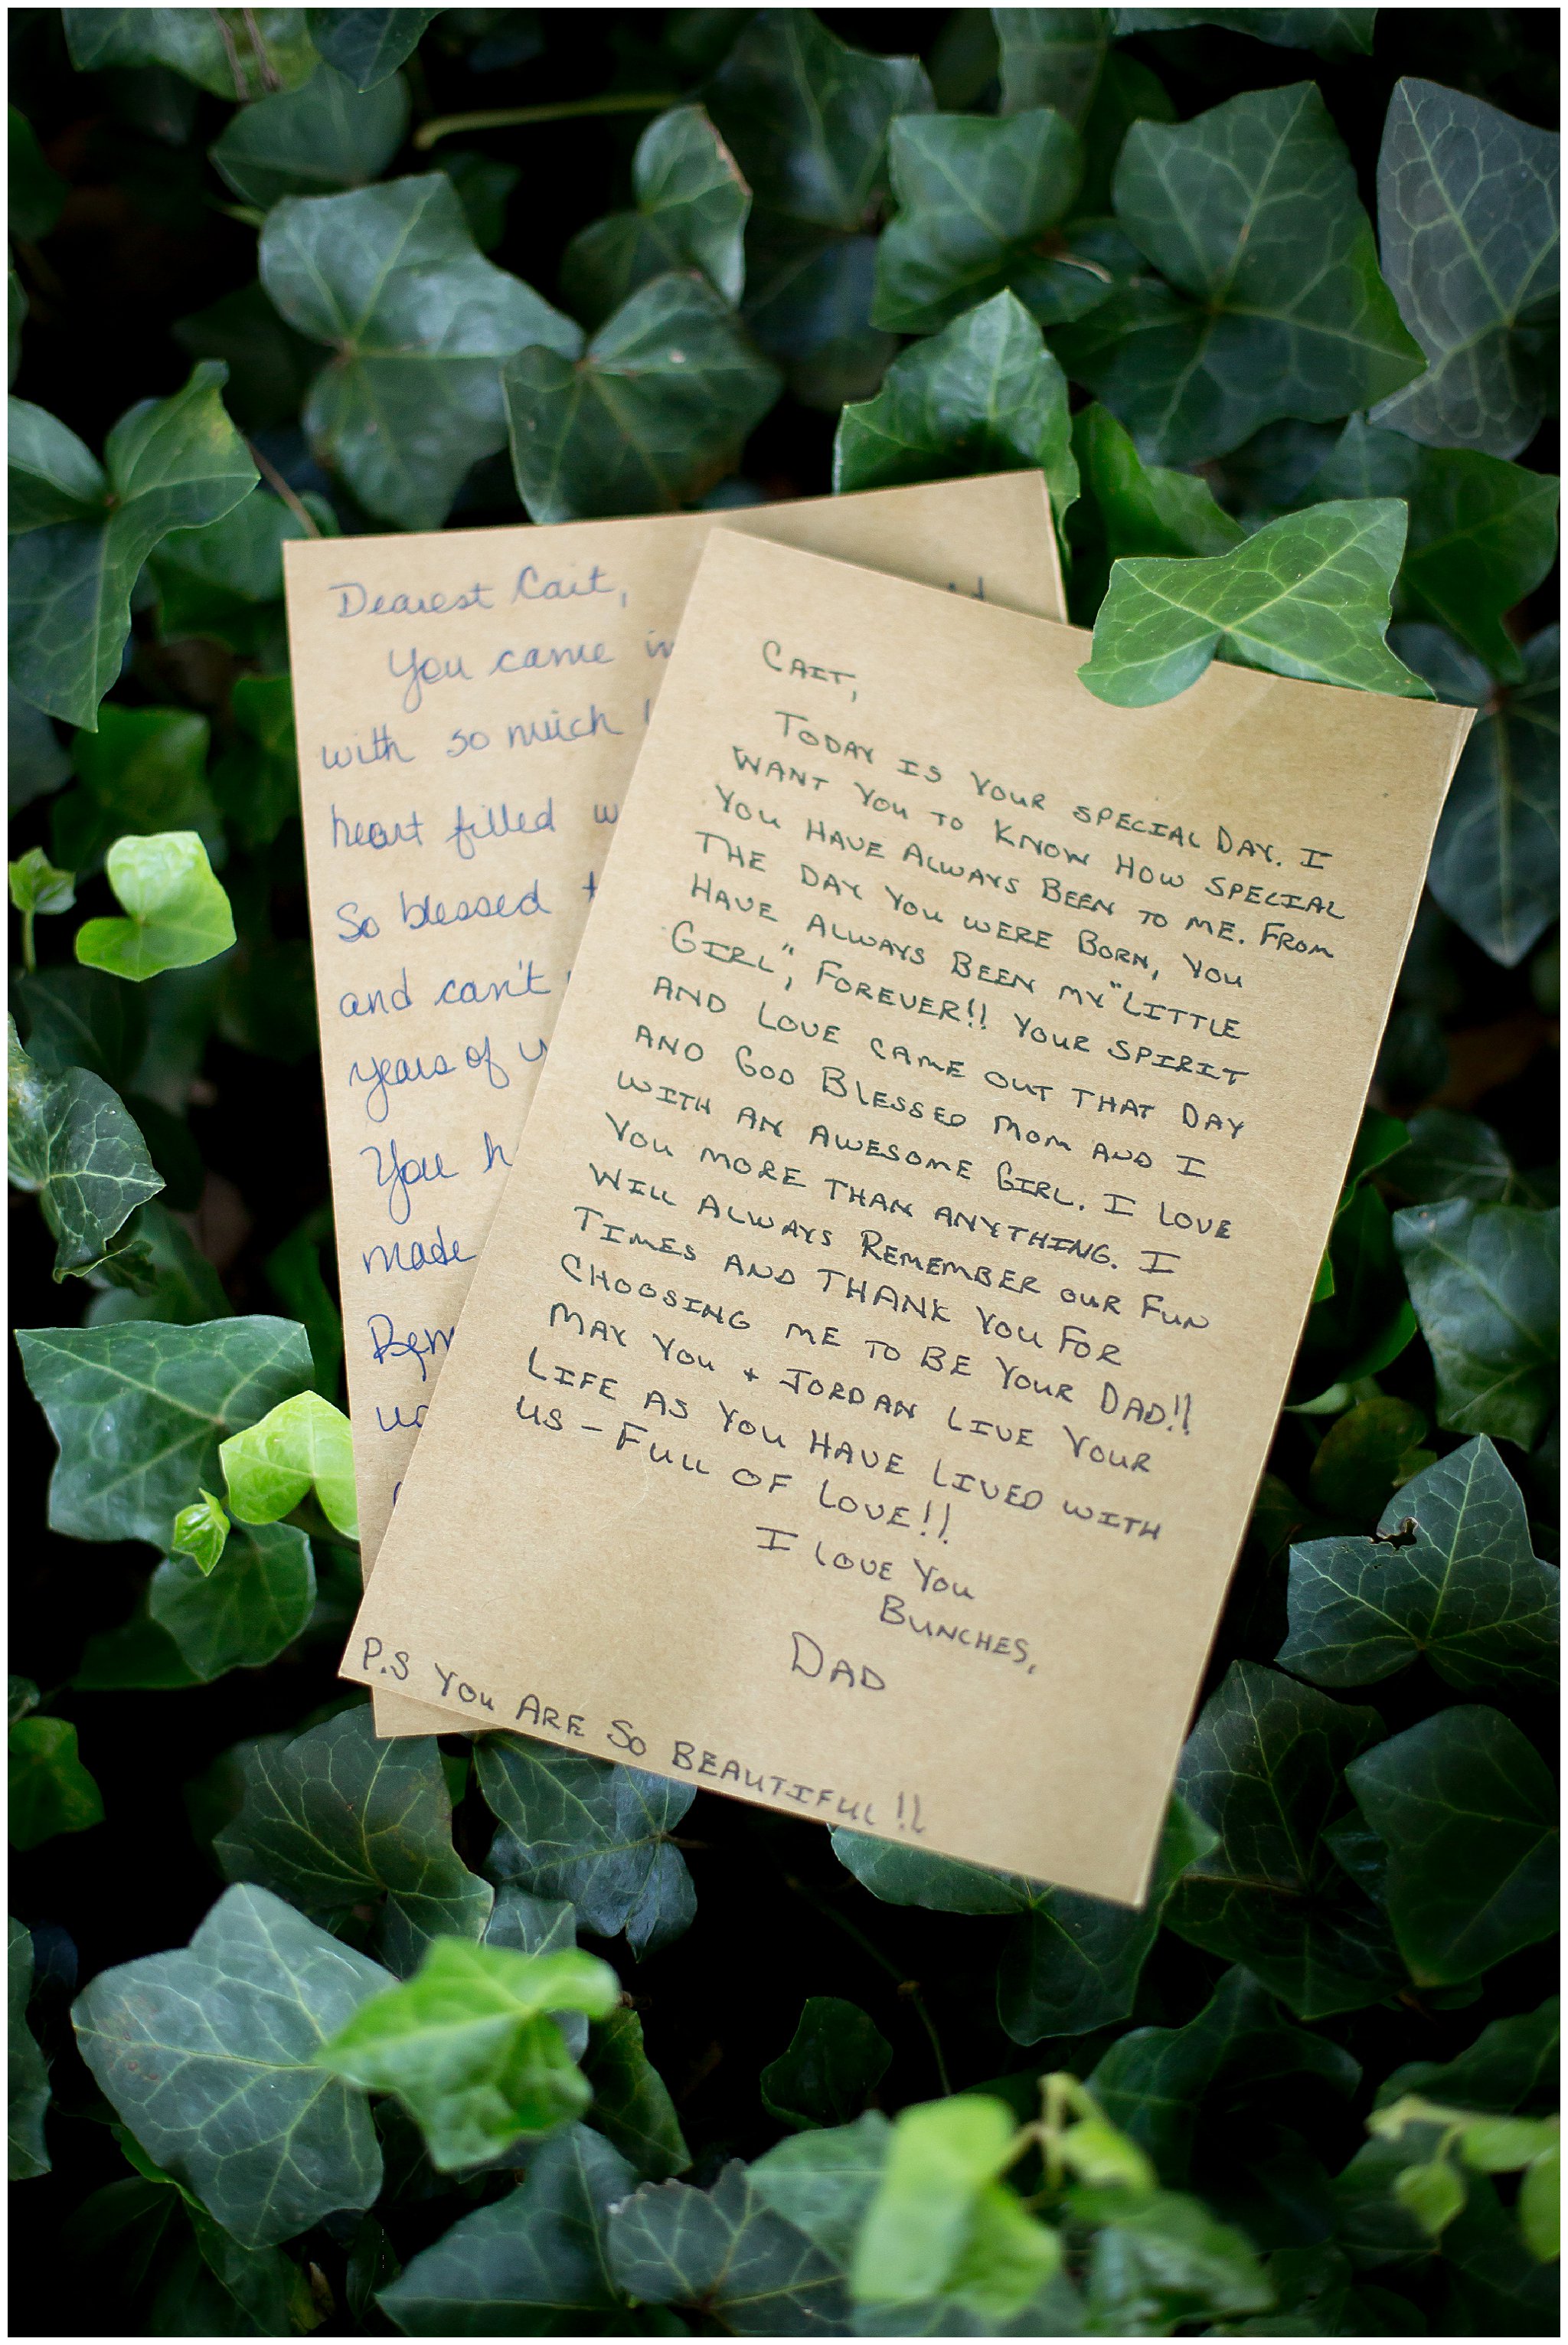 Dearest Cait,
You came
with so much
heart filled
So blessed
and can't
years of
You
made
CAIT,
TODAY IS YOUR SPECIAL DAY. I
WANT YOU TO KNOW HOW SPECIAL
YOU HAVE ALWAYS BEEN TO ME. FROM
THE DAY YOU WERE BORN, YOU
HAVE ALWAYS BEEN MY "LITTLE
GIRL", FOREVER!! YOUR SPIRIT
AND LOVE CAME OUT THAT DAY
AND GOD BLESSED MOM AND I
WITH AN AWESOME GIRL. I LOVE
YOU MORE THAN ANYTHING. I
WILL ALWAYS REMEMBER OUR FUN
TIMES AND THANK YOU FOR
CHOOSING ME TO BE YOUR DAD!!
MAY YOU + JORDAN LIVE YOUR
LIFE AS YOU HAVE LIVED WITH
US - FULL OF LOVE!!
I LOVE YOU
BUNCHES,
DAD
P.S YOU ARE SO BEAUTIFUL!!